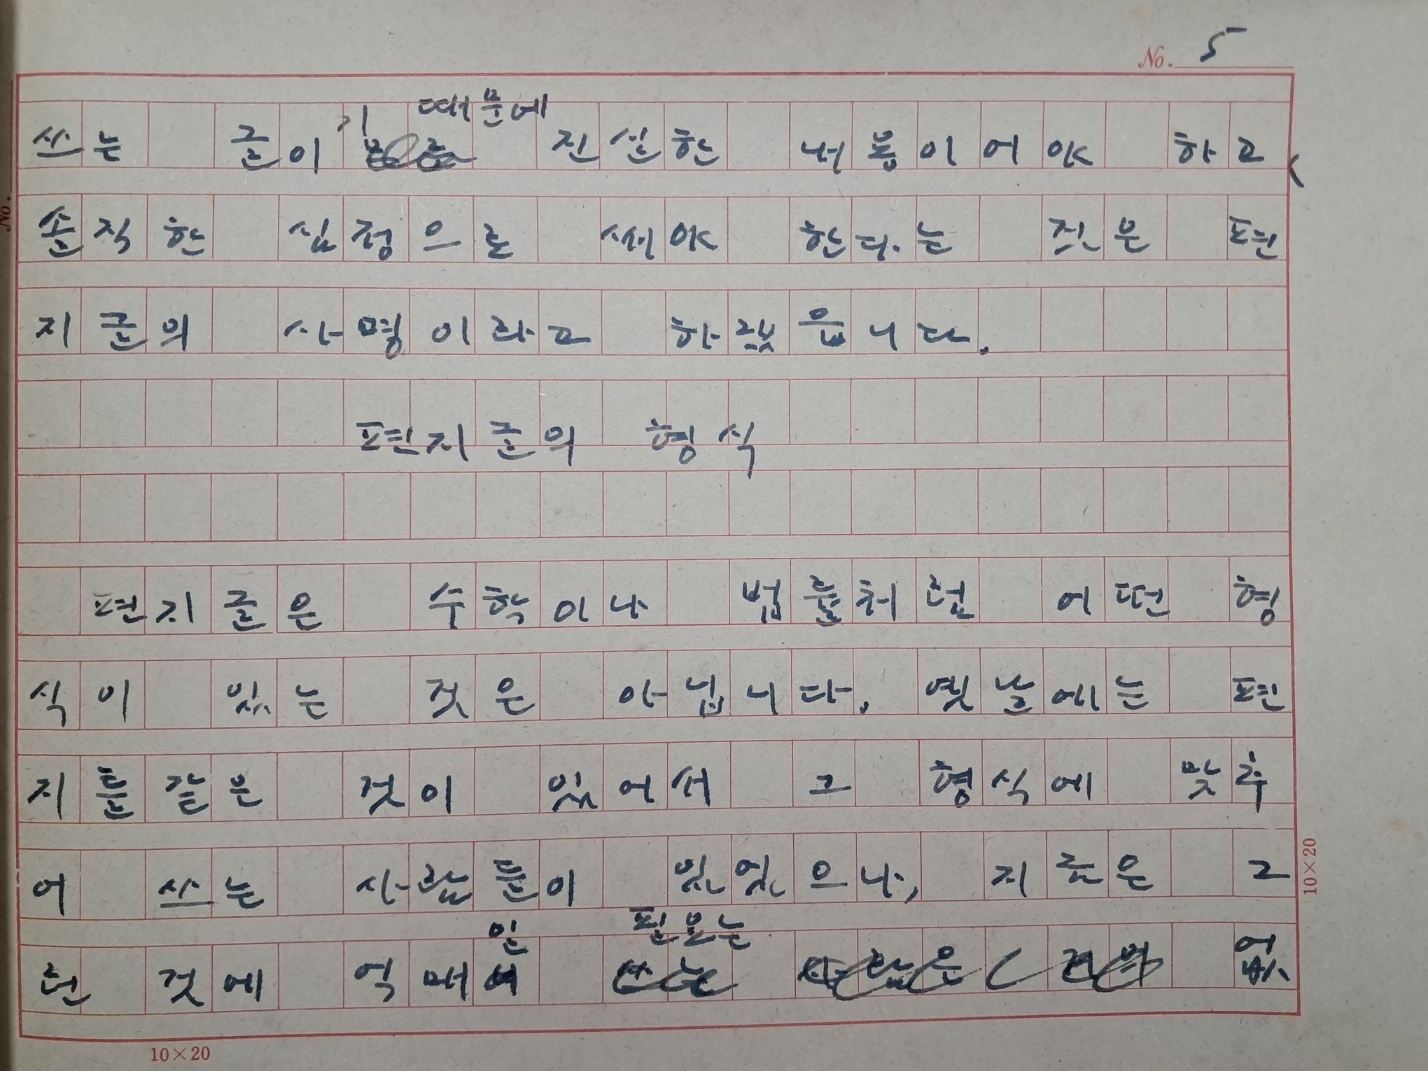 No. 5
쓰는 글이기 때문에 진실한 내용이어야 하고
솔직한 심정으로 써야 한다는 것은 편
지글의 사명이라고 하겠읍니다.
편지글의 형식
편지글은 수학이나 법률처럼 어떤 형
식이 있는 것은 아닙니다. 옛날에는 편
지틀같은 것이 있어서 그 형식에 맞추
어 쓰는 사람들이 있었으나, 지금은 그
런 것에 억매일 필요는 없
10×20
10×20
No.